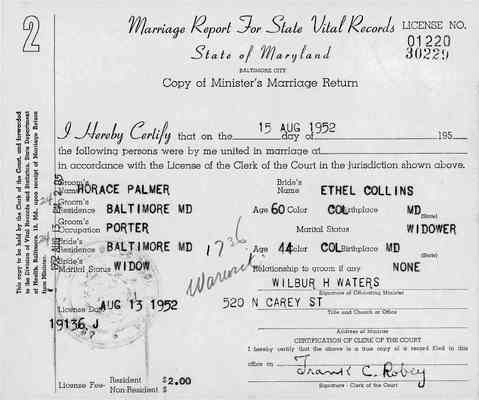 2
Marriage Report For State Vital Records
LICENSE NO.
State of Maryland
01220
30229
BALTIMORE CITY
Copy of Minister's Marriage Return
This copy to be held by the Clerk of the Court, and forwarded
to the Division of Vital Records and Statistics, State Department
of Health, Baltimore, 18, Md., upon receipt of Marriage Return
from Minister.
I Hereby Certify that on the 15 AUG 1952 day of 195
the following persons were by me united in marriage at
in accordance with the License of the Clerk of the Court in the jurisdiction shown above.
Groom's Name HORACE PALMER Bride's Name ETHEL COLLINS
Groom's Residence BALTIMORE MD Age 60 Color COL Birthplace MD (State)
Groom's Occupation PORTER Marital Status WIDOWER
Bride's Residence BALTIMORE MD Age 44 Color COL Birthplace MD (State)
Bride's Marital Status WIDOW Relationship to groom if any NONE
1736
Warwick
WILBUR H WATERS
Signature of Officiating Minister
License Date AUG 13 1952 520 N CAREY ST
Title and Church or Office
19136 J
Address of Minister
CERTIFICATION OF CLERK OF THE COURT
I hereby certify that the above is a true copy of a record filed in this
office in
Frank C. Robey
License Fee- Resident $2.00
Non-Resident $
Signature - Clerk of the Court